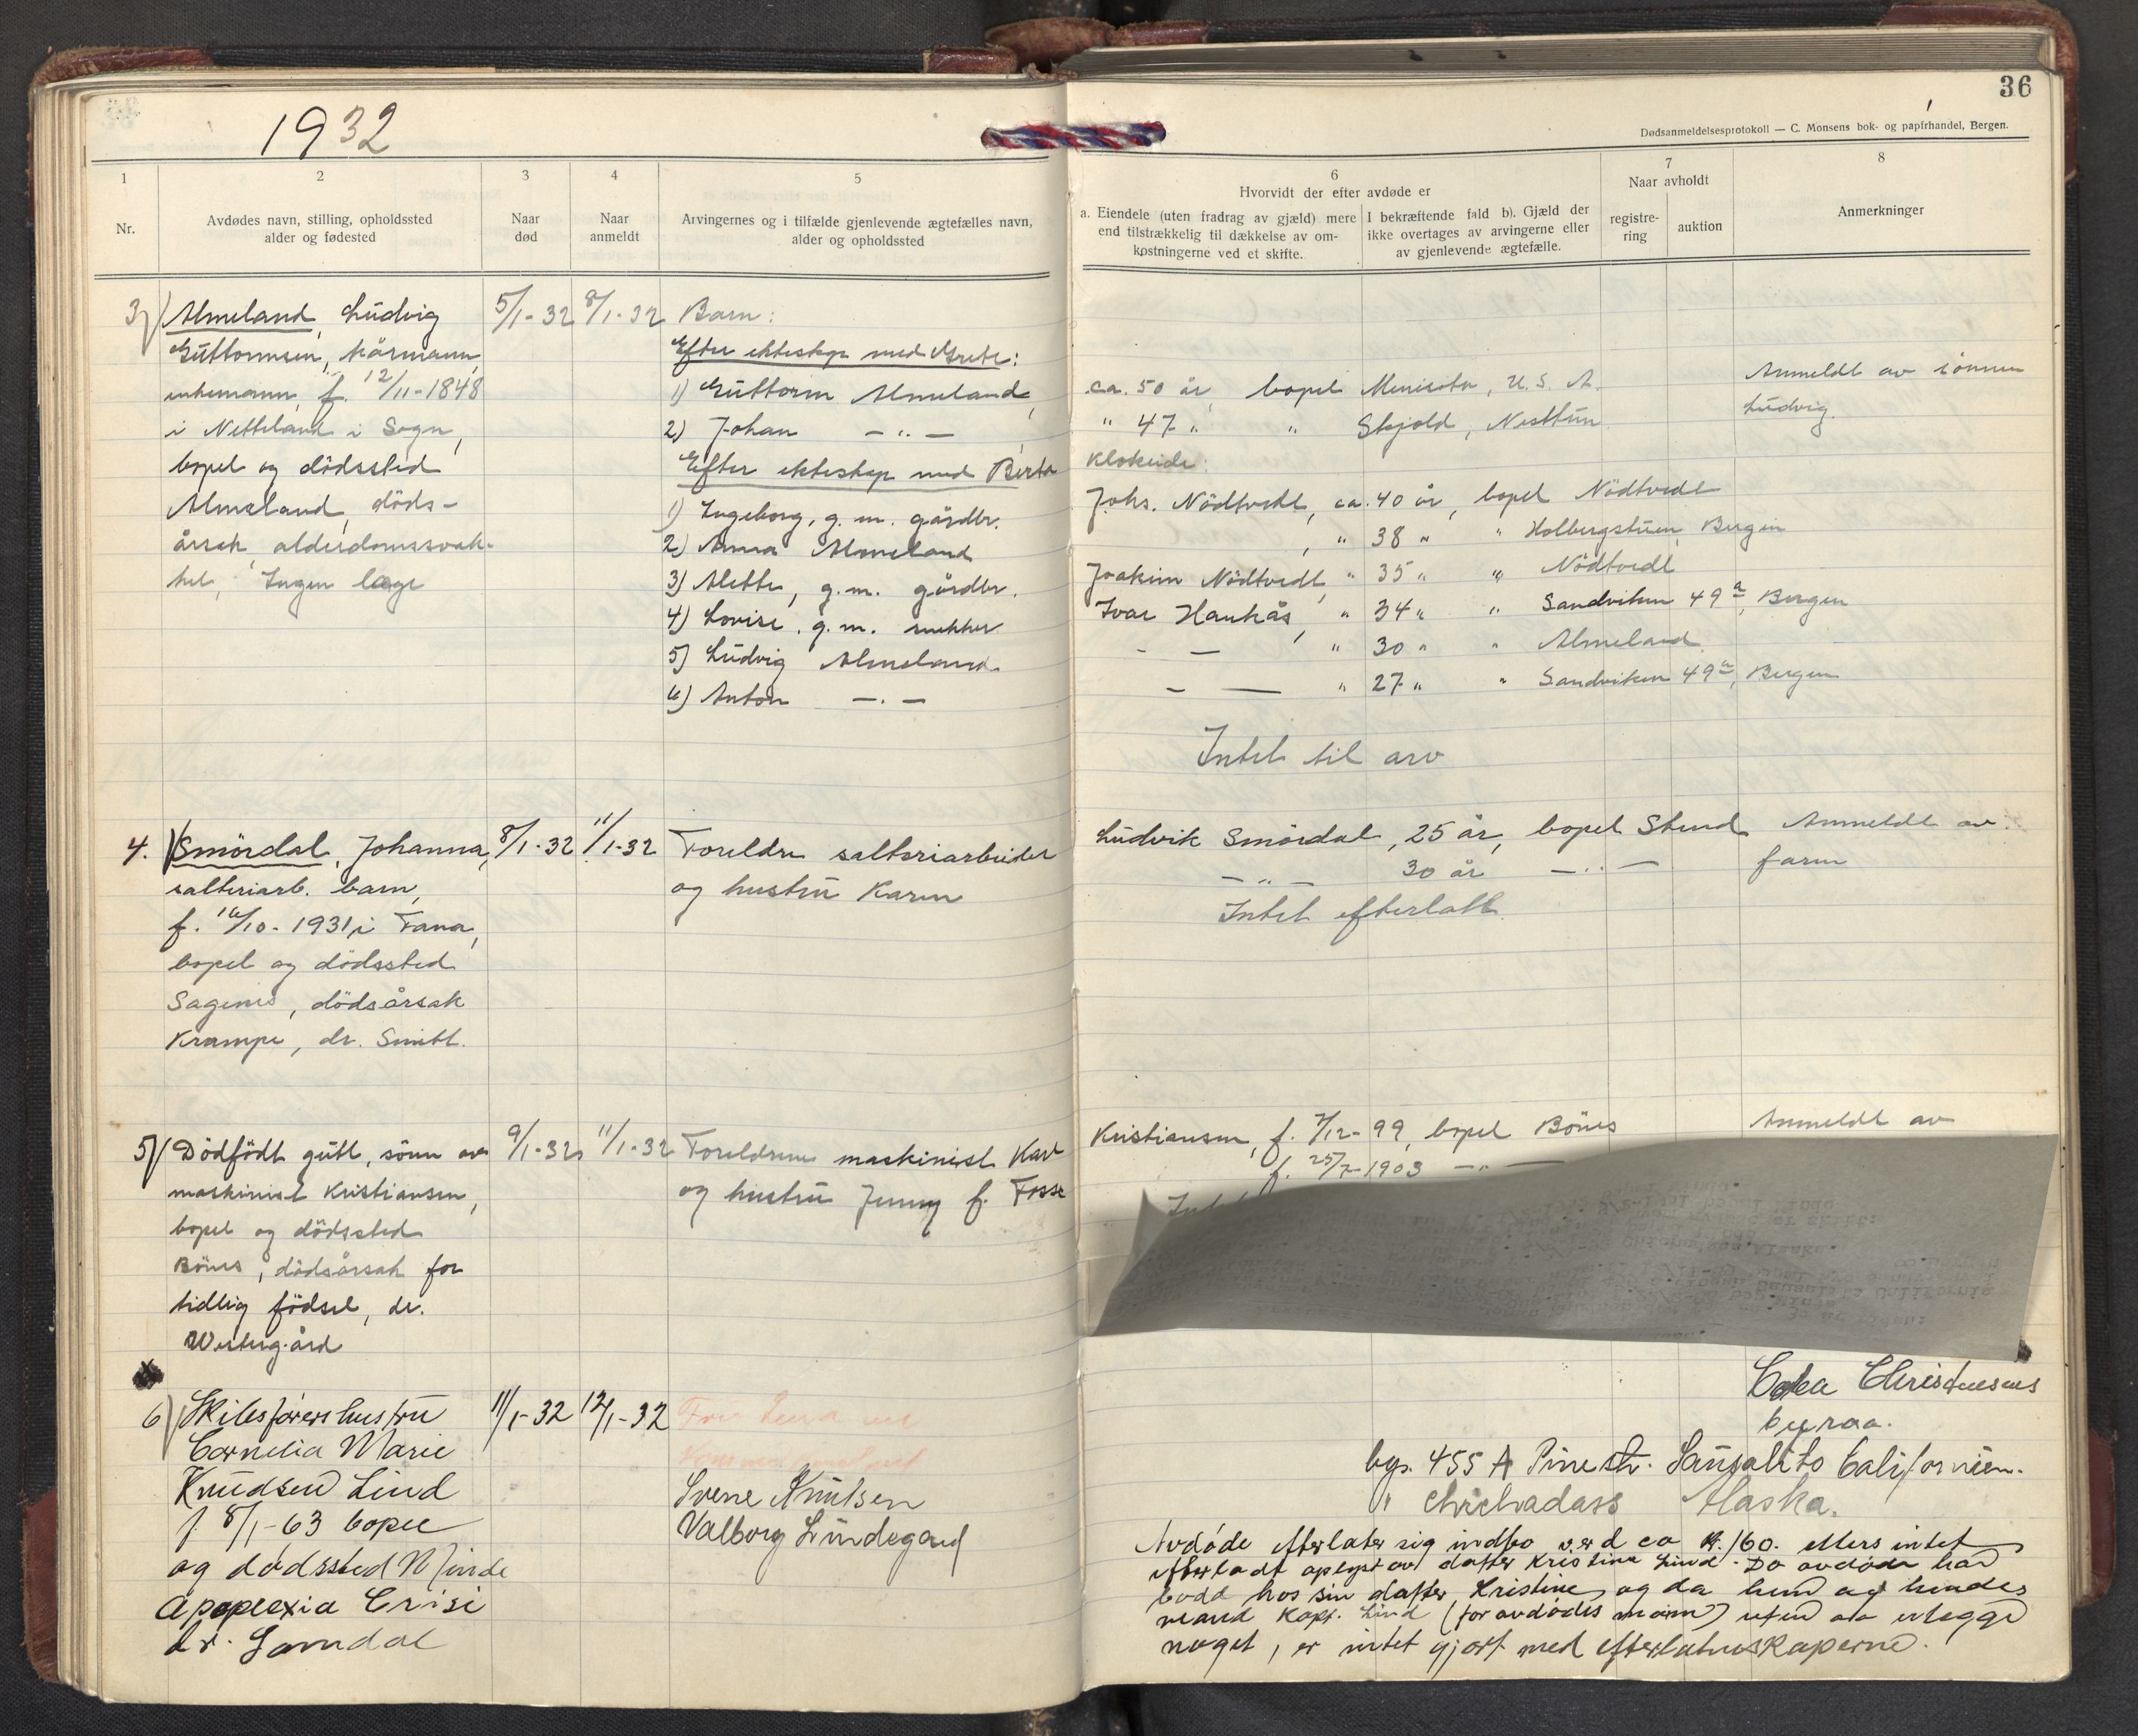 1932
36
Dødsanmeldelsesprotokoll — C. Monsens bok- og papirhandel, Bergen.
1
Nr.
2
Avdødes navn, stilling, opholdssted
alder og fødested
3
Naar
død
4
Naar
anmeldt
5
Arvingernes og i tilfælde gjenlevende ægtefælles navn,
alder og opholdssted
6
Hvorvidt der efter avdøde er
a. Eiendele (uten fradrag av gjæld) mere
end tilstrækkelig til dækkelse av om-
kostningerne ved et skifte.
I bekræftende fald b). Gjæld der
ikke overtages av arvingerne eller
av gjenlevende ægtefælle.
7
Naar avholdt
registre-
ring
auktion
8
Anmerkninger
3) Almeland, Ludvig
Guttormsen, kårmann,
enkemann, f. 12/11-1848
i Netteland i Sogn,
bopel og dödssted
Almeland, döds-
årsak alderdomssvak-
het, Ingen læge
5/1-32
8/1-32
Barn:
Efter ekteskap med Grete:
1) Guttorm Almeland, ca. 50 år, bopel Menisota, U.S.A.
2) Johan —"— " 47 " " Skjold, Nesttun
Efter ekteskap med Berta Klokeide:
1) Ingeborg, g. m. gårdbr. Johs. Nödtvedt, ca. 40 år, bopel Nödtvedt
2) Anna Almeland, " 38 " " Holbergstuen, Bergen
3) Alette, g.m. gårdbr. Joakim Nödtvedt, " 35 " " Nödtvedt
4) Lovise, g.m. snekker Ivar Haukås, " 34 " " Sandviken 49 a, Bergen
5) Ludvig Almeland - — " 30 " " Almeland
6) Anton —.— - — " 27 " " Sandviken 49 a, Bergen
Intet til arv
Anmeldt av sönnen
Ludvig.
4. Smördal, Johanna,
salteriarb. barn,
f. 16/10-1931 i Fana,
bopel og dödssted
Sagenes, dödsårsak
Krampe, dr. Smitt.
8/1-32
11/1-32
Foreldre salteriarbeider Ludvik Smördal, 25 år, bopel Stend
og hustru Karen —"— 30 år —"—
Intet efterlatt.
Anmeldt av
faren
5) Dödfödt gutt, sönn av
maskinist Kristiansen,
bopel og dödssted
Bönes, dödsårsak for
tidlig födsel, dr.
Westergård
9/1-32
11/1-32
Foreldrene maskinist Karl Kristiansen, f. 7/12-99, bopel Bönes
og hustru Jenny f. Fosse f. 25/7-1903 —"—
Anmeldt av
6) Skibsförershustru
Cornelia Marie
Knudsen Lind
f. 8/1-63 bopel
og dødssted Minde
Apoplexia Crisi
dr. Lamdal
11/1-32
12/1-32
Christensens
byraa.
Svene Knutsen bop. 455 A Pine str. Sausalito Californien.
Valborg Lindegard " Alaska.
Avdøde efterlater sig indbo verd ca kr. 160. ellers intet
efterladt oplyst av datter Kristine Lind. Da avdøde har
bodd hos sin datter Kristine, og da hun og hendes
mand Kapt. Lind (for avdødes mann) uten aa erlegge
noget, er intet gjort med efterlatenskaperne.